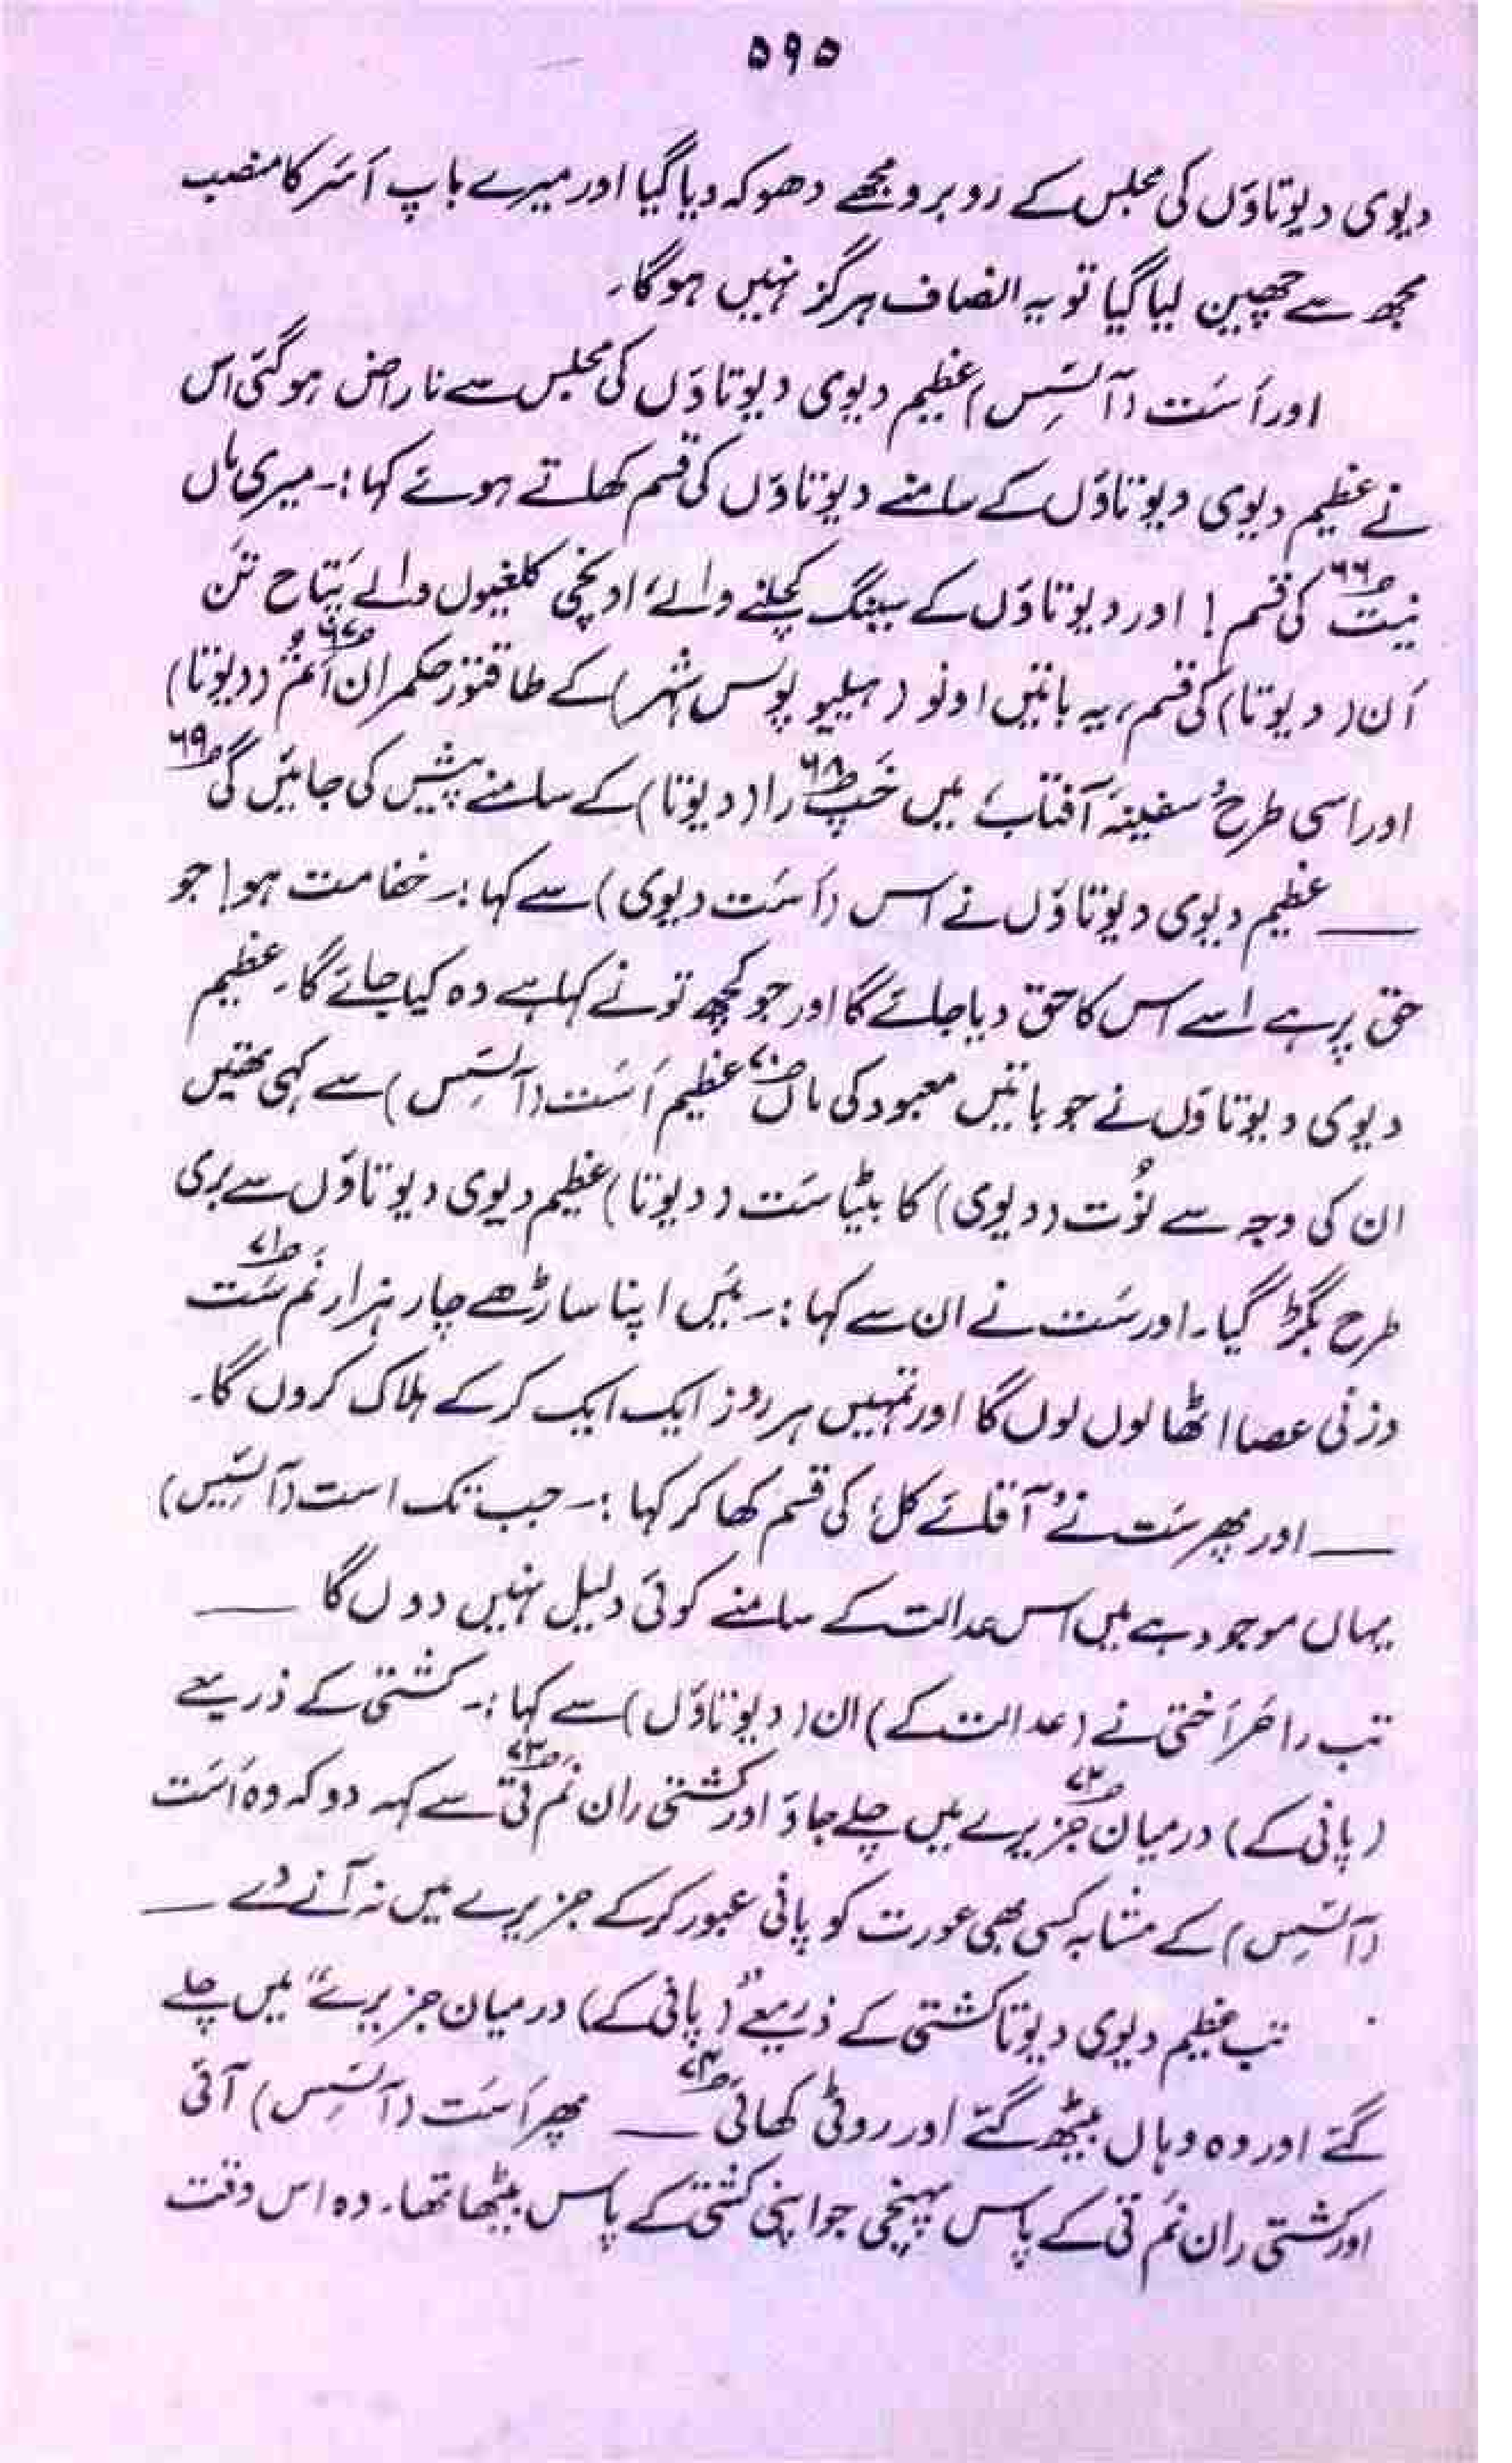 ۵۹۵
دیوی دیوتاؤں کی مجلس کے روبرو مجھے دھوکہ دیا گیا اور میرے باپ اَسَر کا منصب
مجھ سے چھین لیا گیا تو یہ انصاف ہرگز نہیں ہوگا۔
اور اَسَت (آئسِس) عظیم دیوی دیوتاؤں کی مجلس سے ناراض ہو گئی اس
نے عظیم دیوی دیوتاؤں کے سامنے دیوتاؤں کی قسم کھاتے ہوئے کہا :۔ میری ماں
نیت ؃۶۶ کی قسم ! اور دیوتاؤں کے سینگ کچلنے والے، اونچی کلغیوں والے پتاح تنَ
اَن (دیوتا) کی قسم، یہ باتیں اونو (ہیلیو پولس شہر) کے طاقتور حکمران اَتُم ؃۶۷ (دیوتا)
اور اسی طرح 'سفینۂ آفتاب' میں خَپ ؃۶۸ را (دیوتا) کے سامنے پیش کی جائیں گی ؃۶۹
—— عظیم دیوی دیوتاؤں نے اس (اَسَت دیوی) سے کہا :۔ خفا مت ہو! جو
حق پر ہے اسے اس کا حق دیا جائے گا اور جو کچھ تو نے کہا ہے وہ کیا جائے گا۔ عظیم
دیوی دیوتاؤں نے جو باتیں معبود کی ماں ؃۷۰ عظیم اَسَت (آئسِس) سے کہی تھیں
ان کی وجہ سے نُوت (دیوی) کا بیٹا سَت (دیوتا) عظیم دیوی دیوتاؤں سے بری
طرح بگڑ گیا۔ اور سَت نے ان سے کہا :۔ میَں اپنا ساڑھے چار ہزار نَم سَت ؃۷۱
وزنی عصا اٹھا لوں لوں گا اور تمہیں ہر روز ایک ایک کر کے ہلاک کروں گا۔
—— اور پھر سَت نے 'آقائے کل' کی قسم کھا کر کہا :۔ جب تک است (آئسِیس)
یہاں موجود ہے میں اس عدالت کے سامنے کوئی دلیل نہیں دوں گا ——
تب را حَر اَختی نے (عدالت کے) ان (دیوتاؤں) سے کہا :۔ کشتی کے ذریعے
(پانی کے) درمیان جزیرے ؃۷۲ میں چلے جاؤ اور کشتی ران نَم تی ؃۷۳ سے کہہ دو کہ وہ اَسَت
(آئسِس) کے مشابہ کسی بھی عورت کو پانی عبور کر کے جزیرے میں نہ آنے دے ——
تب عظیم دیوی دیوتا کشتی کے ذریعے "(پانی کے) درمیان جزیرے" میں چلے
گئے اور وہ وہاں بیٹھ گئے اور روٹی کھائی ؃۷۴ —— پھر اَسَت (آئسِس) آئی
اور کشتی ران نَم تی کے پاس پہنچی جو اپنی کشتی کے پاس بیٹھا تھا۔ وہ اس وقت